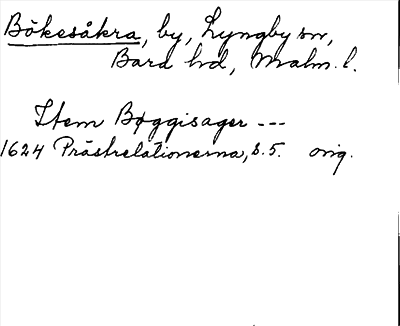 Bökesåkra, by, Lyngby sn,
Bara hd, Malm. l.
Item Bøggisager ---
1624 Prästrelationerna, s. 5. orig.